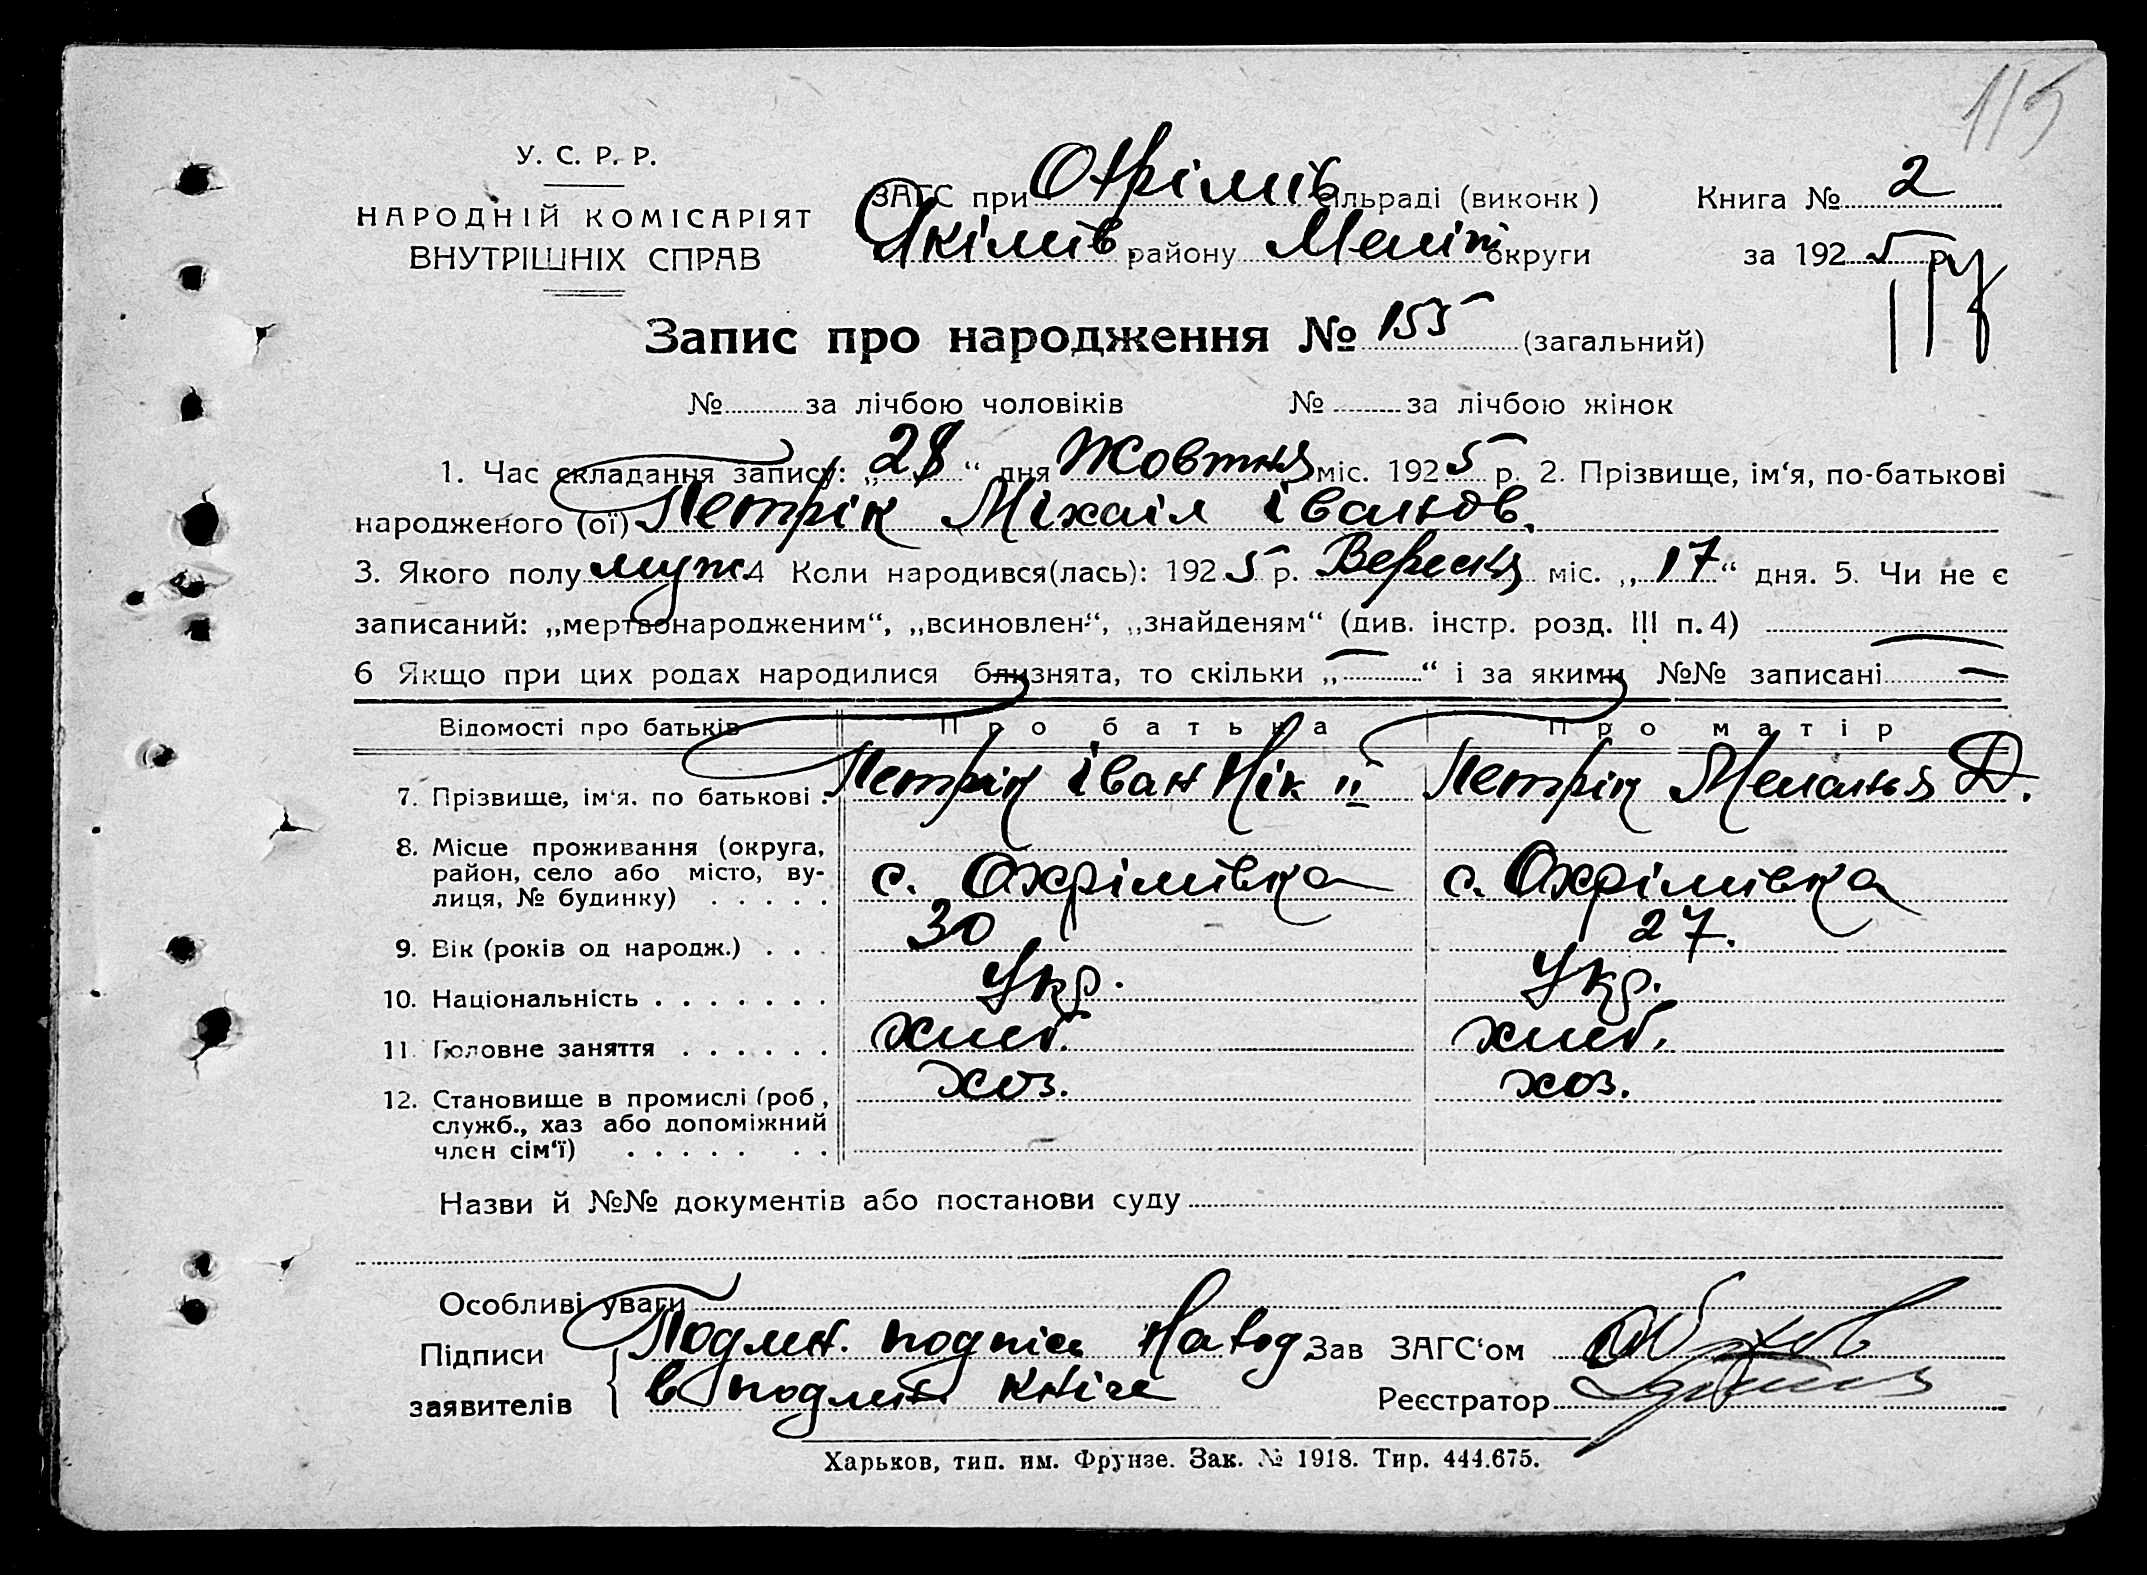 115
У. С. Р. Р.
НАРОДНІЙ КОМІСАРІЯТ
ВНУТРІШНІХ СПРАВ
ЗАГС при Охрімів сільраді (виконк)
Книга № 2
Якімів району Меліт округи
за 1925 р.
Запис про народження № 155 (загальний)
№ за лічбою чоловіків № за лічбою жінок
1. Час складання запису: „28“ дня Жовтня міс. 1925 р. 2. Прізвище, ім‘я, по-батькові
народженого (ої) Петрік Міхаіл Іванов.
3. Якого полу муж. 4 Коли народився(лась): 1925 р. Вересня міс. „17“ дня. 5. Чи не є
записаний: „мертвонародженим“, „всиновлен“, „знайденям“ (див. інстр. розд. III п. 4)
6 Якщо при цих родах народилися близнята, то скільки „—“ і за якими №№ записані —
Відомості про батьків Про батька Про матір
7. Прізвище, ім‘я. по батькові . Петрік Іван Нік II Петрік Меланья Д.
8. Місце проживання (округа,
район, село або місто, ву-
лиця, № будинку) . . . . . с. Охрімівка с. Охрімівка
9. Вік (років од народж.) . . . 30 27.
10. Національність . . . . . . . Укр. Укр.
11. Головне заняття . . . . . . хліб. хліб.
12. Становище в промислі (роб., хоз. хоз.
служб., хаз або допоміжний
член сім‘ї) . . . . . . .
Назви й №№ документів або постанови суду
Особливі уваги
Підписи Подлін. подпісь Наход Зав ЗАГС‘ом
заявителів в подлін. кніге Реєстратор
Харьков, тип. им. Фрунзе. Зак. № 1918. Тир. 444.675.